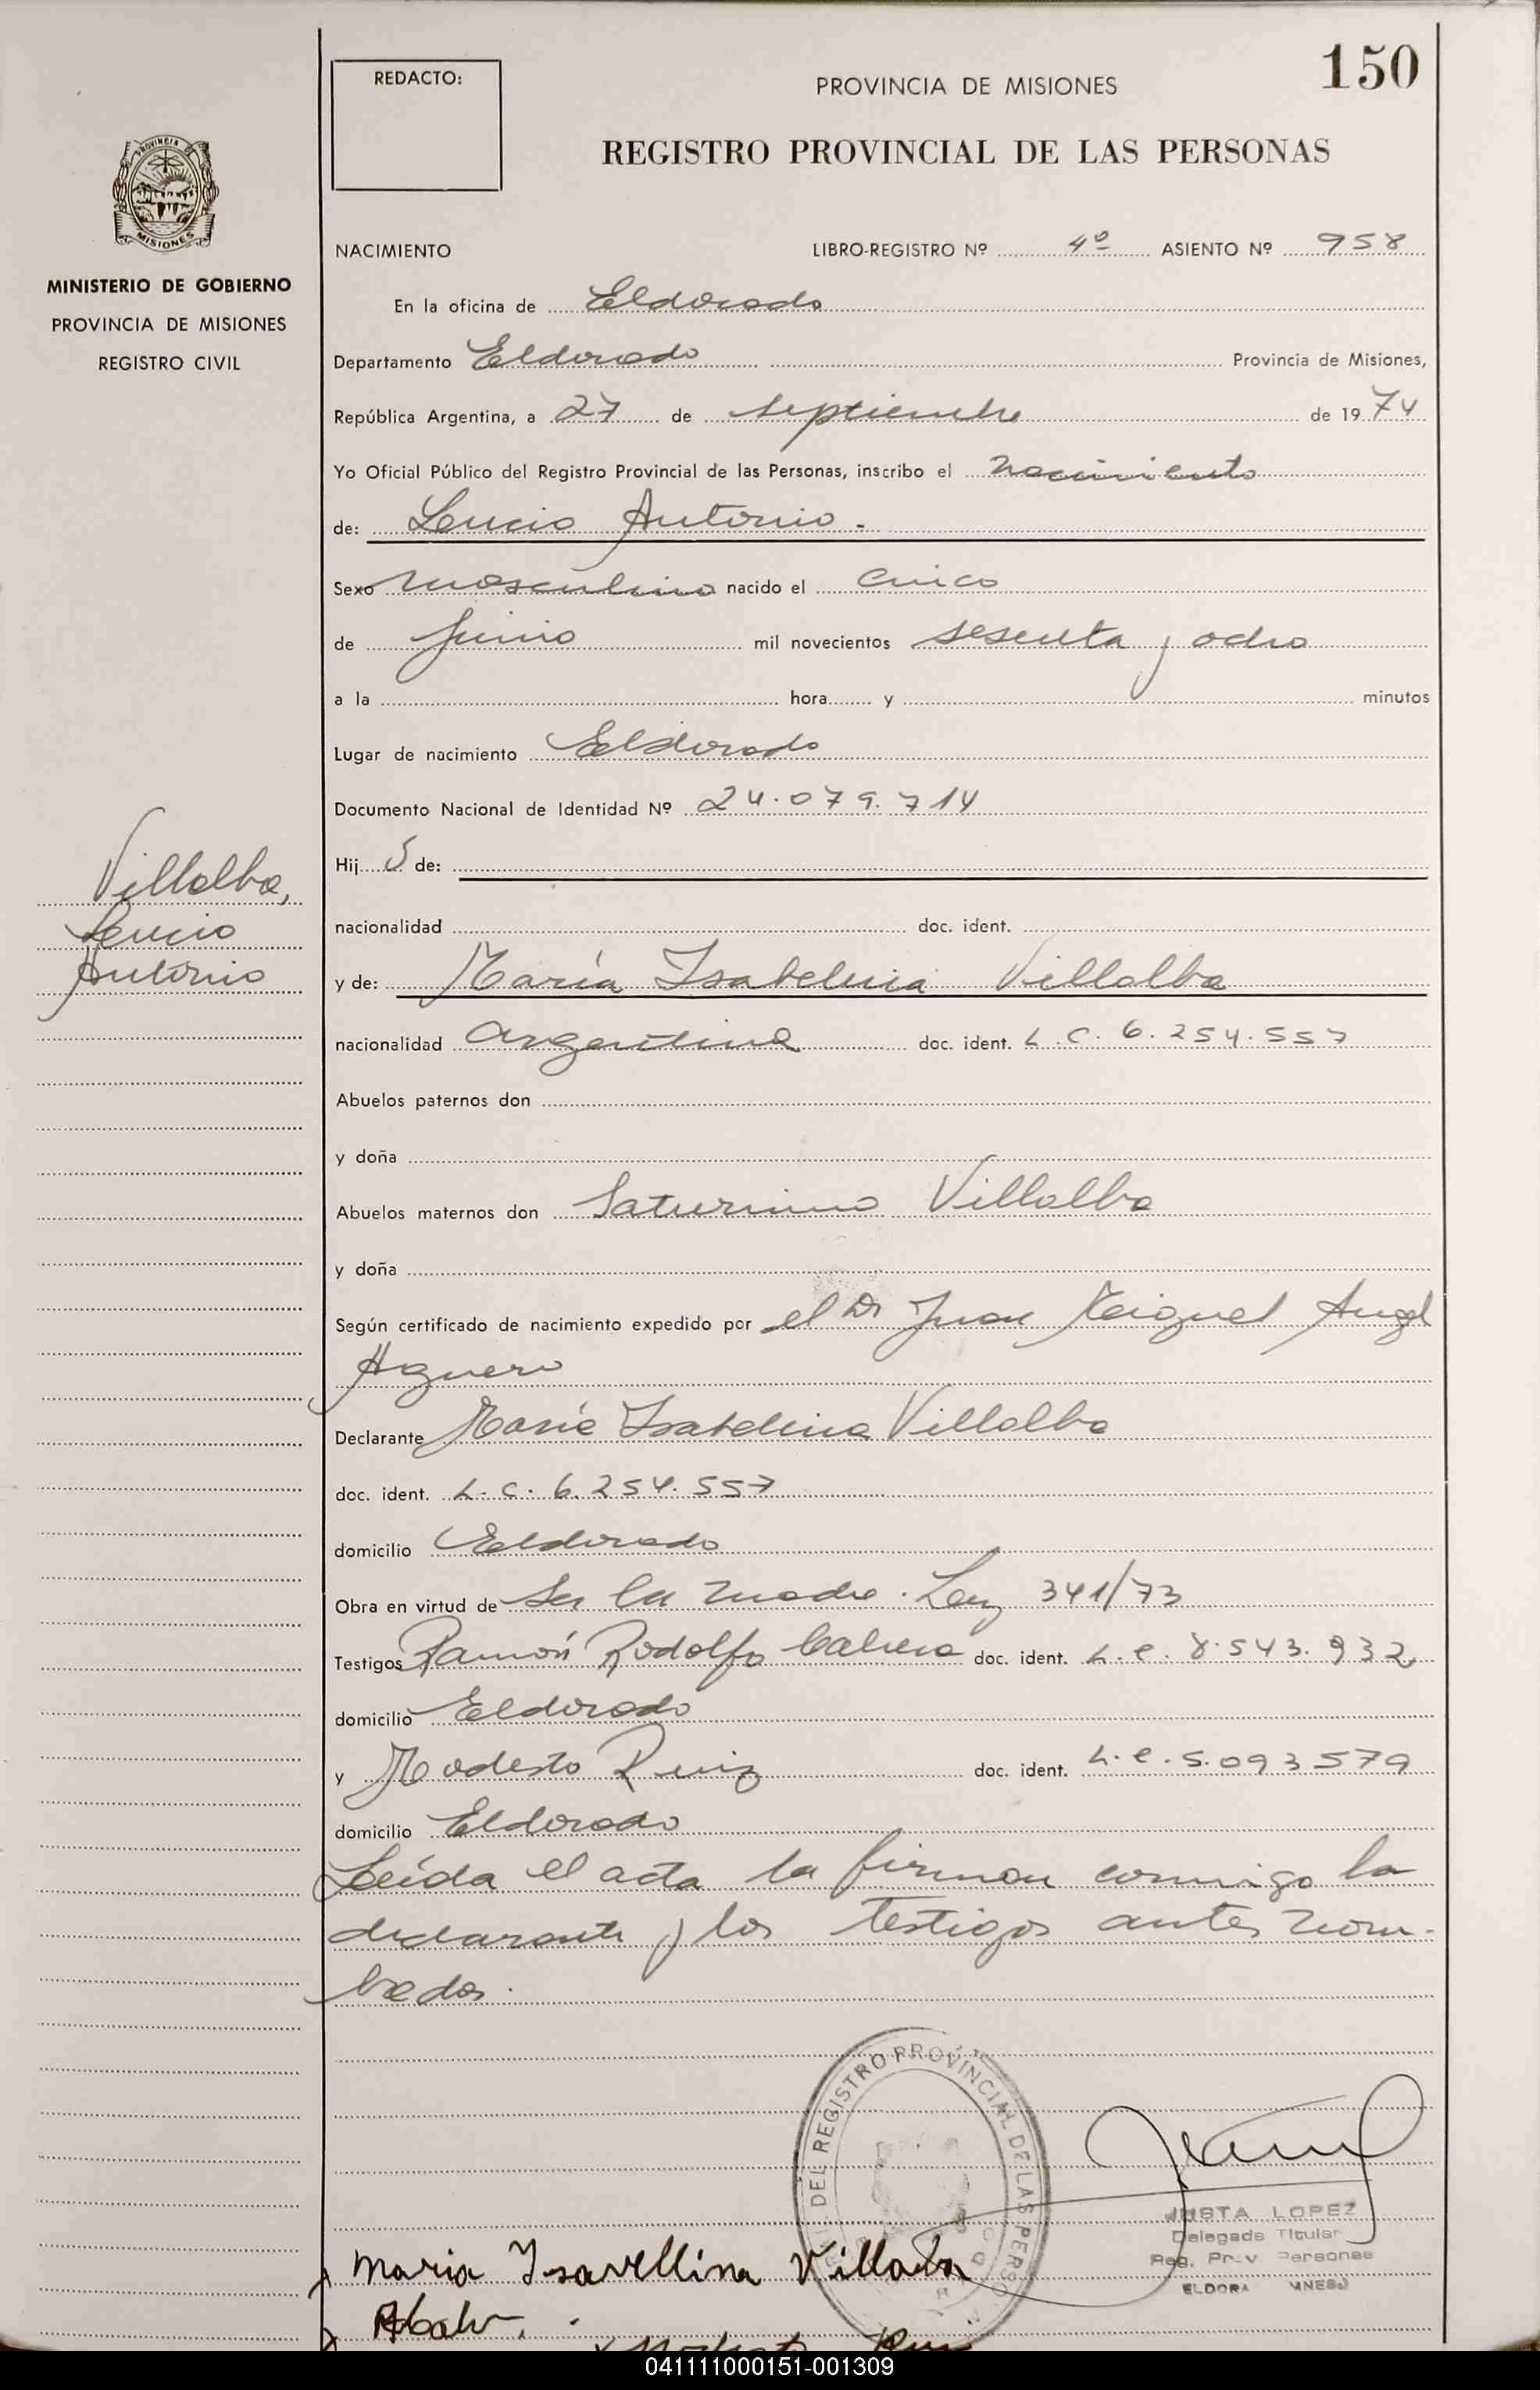 150
REDACTO:
PROVINCIA DE MISIONES
REGISTRO PROVINCIAL DE LAS PERSONAS
PROVINCIA DE
MISIONES
MINISTERIO DE GOBIERNO
PROVINCIA DE MISIONES
REGISTRO CIVIL
NACIMIENTO LIBRO-REGISTRO Nº 4º ASIENTO Nº 958
En la oficina de Eldorado
Departamento Eldorado Provincia de Misiones,
República Argentina, a 27 de septiembre de 1974
Yo Oficial Público del Registro Provincial de las Personas, inscribo el nacimiento
de: Lucio Antonio.
Sexo masculino nacido el cinco
de junio mil novecientos sesenta y ocho
a la hora y minutos
Lugar de nacimiento Eldorado
Documento Nacional de Identidad Nº 24.079.714
Hijo de:
Villalba,
Lucio
Antonio
nacionalidad doc. ident.
y de: María Isabelina Villalba
nacionalidad argentina doc. ident. L.C. 6.254.557
Abuelos paternos don
y doña
Abuelos maternos don Saturnino Villalba
y doña
Según certificado de nacimiento expedido por el Dr Juan Miguel Angel
Aguero
Declarante María Isabelina Villalba
doc. ident. L.C. 6.254.557
domicilio Eldorado
Obra en virtud de ser la madre. Ley 341/73
Testigos Ramón Rodolfo Cabrera doc. ident. L.e. 8.543.932
domicilio Eldorado
y Modesto Ruiz doc. ident. L.e. 5.093579
domicilio Eldorado
Leída el acta la firman conmigo la
declarante y los testigos antes nom-
brados.
DEL REGISTRO PROVINCIAL DE LAS PERSO
JUSTA LOPEZ
Delegada Titular
Reg. Prov Personas
ELDORA MNES
Maria Isavellina Villaba
Modesto Ruiz
041111000151-001309